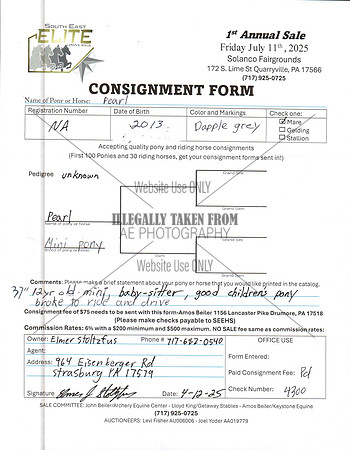 SOUTH EAST
ELITE
1st Annual Sale
Friday July 11th, 2025
Solanco Fairgrounds
172 S. Lime St Quarryville, PA 17566
(717) 925-0725
CONSIGNMENT FORM
Name of Pony or Horse: Pearl
Registration Number Date of Birth Color and Markings Check one:
NA 2013 Dapple grey Mare
Gelding
Stallion
Accepting quality pony and riding horse consignments
(First 100 Ponies and 30 riding horses, get your consignment forms sent in!)
Pedigree unknown
Website Use ONLY
Pearl
Name of pony or horse
ILLEGALLY TAKEN FROM
AE PHOTOGRAPHY
Mini pony
Website Use ONLY
Comments: Please make a brief statement about your pony or horse that you would like printed in the catalog.
37" 12yr old mini, baby-sitter, good children's pony
broke to ride and drive
Consignment fee of $75 needs to be sent with this form-Amos Beiler 1156 Lancaster Pike Drumore, PA 17518
(Please make checks payable to SEEHS)
Commission Rates: 6% with a $200 minimum and $500 maximum. NO SALE fee same as commission rates:
Owner: Elmer Stoltzfus Phone # 717-682-0540 OFFICE USE
Agent:
Form Entered:
Address: 964 Eisenberger Rd
Strasburg PA 17579
Paid Consignment Fee: Pd
Check Number: 4900
Signature Date: 4-12-25
SALE COMMITTEE: John Beiler/Archery Equine Center - Lloyd King/Getaway Stables - Amos Beiler/Keystone Equine
(717) 925-0725
AUCTIONEERS: Levi Fisher AU006006 - Joel Yoder AA019779